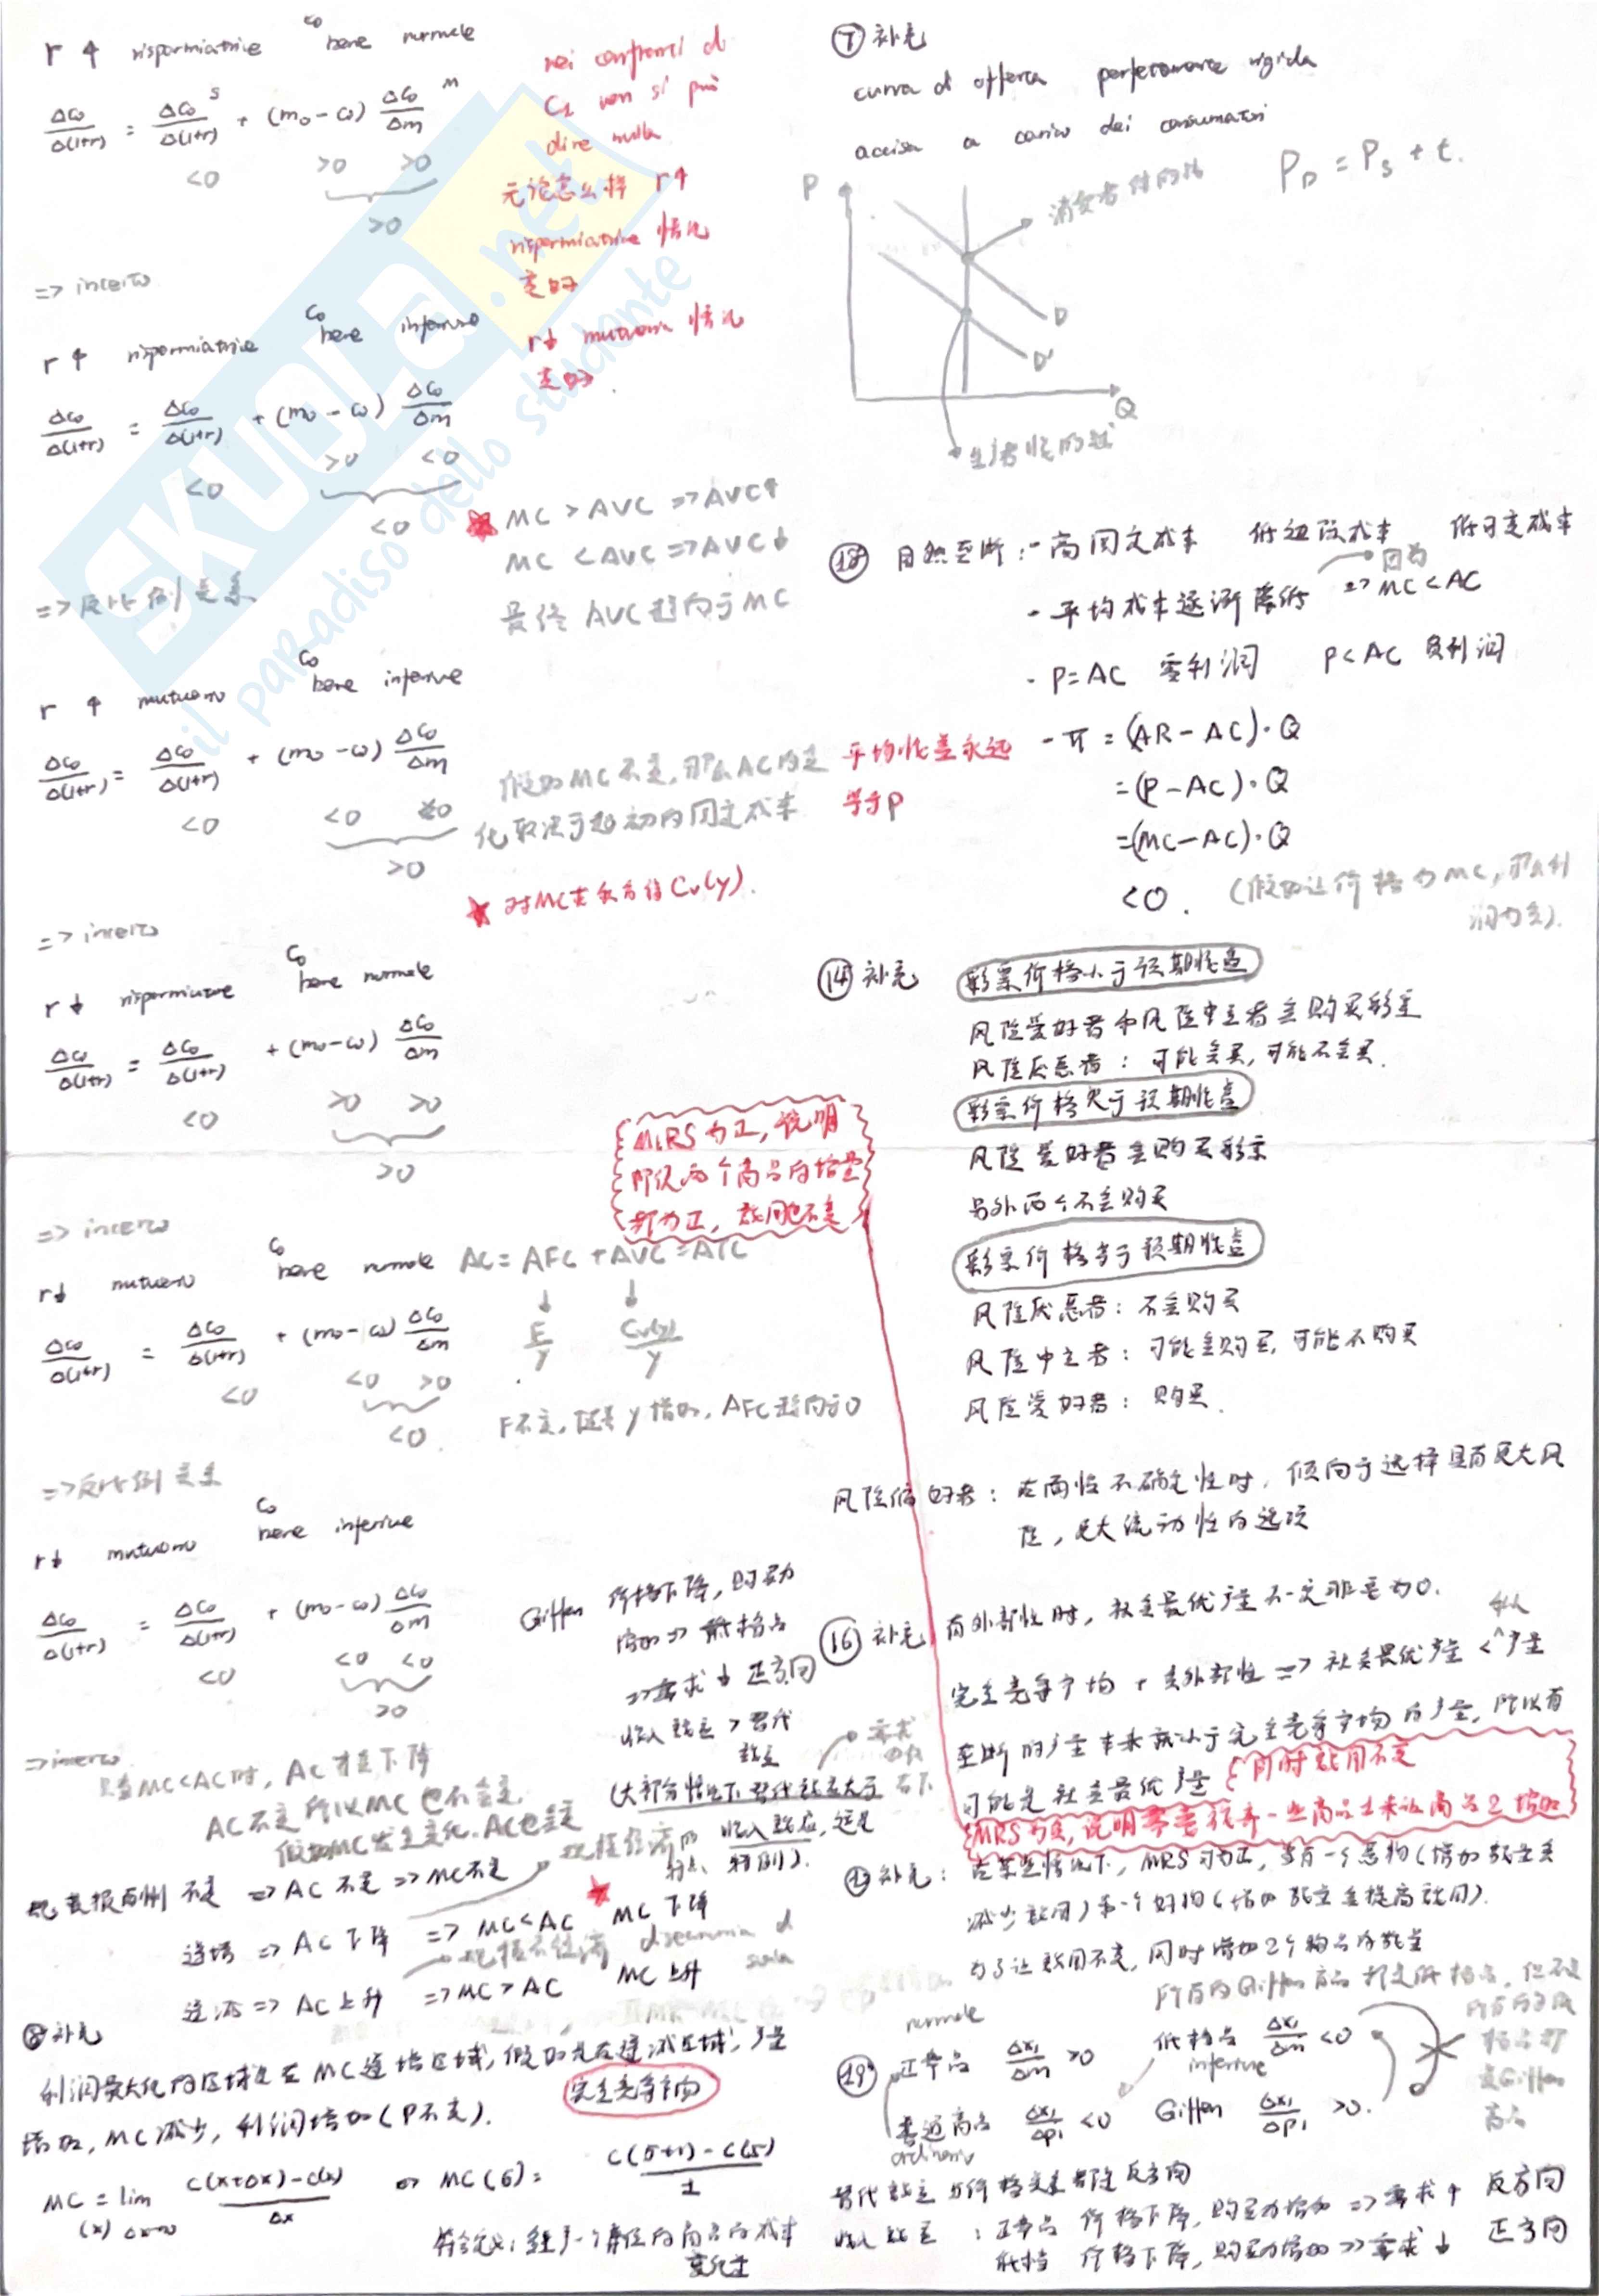 r ↑ risparmiatrice C₀ bene normale
ΔC₀/Δ(1+r) = ΔC₀ˢ/Δ(1+r) + (m₀-C₀) ΔC₀ᵐ/Δm
<0 >0 >0
>0
=> incerto
r ↑ risparmiatrice C₀ bene inferiore
ΔC₀/Δ(1+r) = ΔC₀/Δ(1+r) + (m₀-C₀) ΔC₀/Δm
<0 >0 <0
<0
=> 反比例关系
r ↑ mutuario C₀ bene inferiore
ΔC₀/Δ(1+r) = ΔC₀/Δ(1+r) + (m₀-C₀) ΔC₀/Δm
<0 <0 <0
>0
=> incerto
r ↓ risparmiatore C₀ bene normale
ΔC₀/Δ(1+r) = ΔC₀/Δ(1+r) + (m₀-C₀) ΔC₀/Δm
<0 >0 >0
>0
=> incerto
r ↓ mutuario C₀ bene normale
ΔC₀/Δ(1+r) = ΔC₀/Δ(1+r) + (m₀-C₀) ΔC₀/Δm
<0 <0 >0
<0
=> 反比例关系
r ↓ mutuario C₀ bene inferiore
ΔC₀/Δ(1+r) = ΔC₀/Δ(1+r) + (m₀-C₀) ΔC₀/Δm
<0 <0 <0
>0
=> incerto
nei confronti di
C₁ non si può
dire nulla
无论怎么样 r↑
risparmiatrice 情况
变好
r↓ mutuario 情况
变好.
SKUOLA.net
il paradiso dello studente
★ MC > AVC => AVC↑
MC < AVC => AVC↓
最终 AVC 趋向于 MC
假如 MC 不变, 那么 AC 的变
化取决于起初的固定成本
★ 对MC求积分得 Cv(y).
MRS 为正, 说明
所说两个商品的增量
都为正, 效用也不变
AC = AFC + AVC = ATC
F/y Cv(y)/y
F不变, 随着 y 增加, AFC 趋向于0
Giffen 价格下降, 购买力
增加 => 低档品
=> 需求 ↓ 正方向
收入效应 > 替代
效应
(大部分情况下替代效应大于
收入效应, 这是
特例).
需求
右下
只当 MC<AC时, AC 才会下降
AC 不变 所以 MC 也不会变,
假如MC发生变化, AC也会变
规模报酬 不变 => AC 不变 => MC不变
递增 => AC 下降 => MC < AC MC 下降
规模经济
递减 => AC 上升 => MC > AC MC 上升
规模不经济 diseconomia di scala
⑧ 补充
利润最大化的区域是在 MC 递增区域, 假如是在递减区域, 产量
增加, MC 减少, 利润增加 (P不变).
完全竞争市场
MC(x) = lim Δx→0 C(x+Δx)-C(x)/Δx
MC(6) = C(5+1)-C(5)/1
符合定义: 每多一个单位的商品的成本
变化量
⑦ 补充
curva di offerta perfettamente rigida
accisa a carico dei consumatori
P_D = P_S + t.
P
消费者付的钱
D
D'
Q
生产者收的钱
⑱ 自然垄断: - 高固定成本 低边际成本 低可变成本
- 平均成本逐渐降低 => MC < AC
因为
- P=AC 零利润 P<AC 负利润
平均收益永远
等于P
- π = (AR-AC)·Q
=(P-AC)·Q
=(MC-AC)·Q
<0. (假如让价格为MC, 那么利
润为负).
⑭ 补充 彩票价格小于预期收益
风险爱好者和风险中立者会购买彩票
风险厌恶者: 可能会买, 可能不会买.
彩票价格大于预期收益
风险爱好者会购买彩票
另外两个不会购买
彩票价格等于预期收益
风险厌恶者: 不会购买
风险中立者: 可能会购买, 可能不购买
风险爱好者: 购买.
风险偏好者: 在面临不确定性时, 倾向于选择具有更大风
险, 更大流动性的选项
⑯ 补充 有外部性时, 社会最优产量不一定非要为0.
完全竞争市场 + 负外部性 => 社会最优产量 < 产量
垄断的产量本来就小于完全竞争市场的产量, 所以有
可能是社会最优产量
同时效用不变
MRS为负, 说明需要放弃一些商品1来让商品2增加
补充: 在某些情况下, MRS 可为正, 当有一个恶物 (增加数量会
减少效用) 和一个好物 (增加数量会提高效用).
为了让效用不变, 同时增加2个物品的数量
⑲ normale
正常品 Δx₁/Δm >0 低档品 Δx₁/Δm <0
inferiore
普通商品 Δx₁/Δp₁ <0 Giffen Δx₁/Δp₁ >0.
ordinario
所有的Giffen商品都是低档品, 但不是
所有的低
档品都
是Giffen
商品
替代效应 与价格变量都是反方向
收入效应: 正常品 价格下降, 购买力增加 => 需求 ↑ 反方向
低档 价格下降, 购买力增加 => 需求 ↓ 正方向